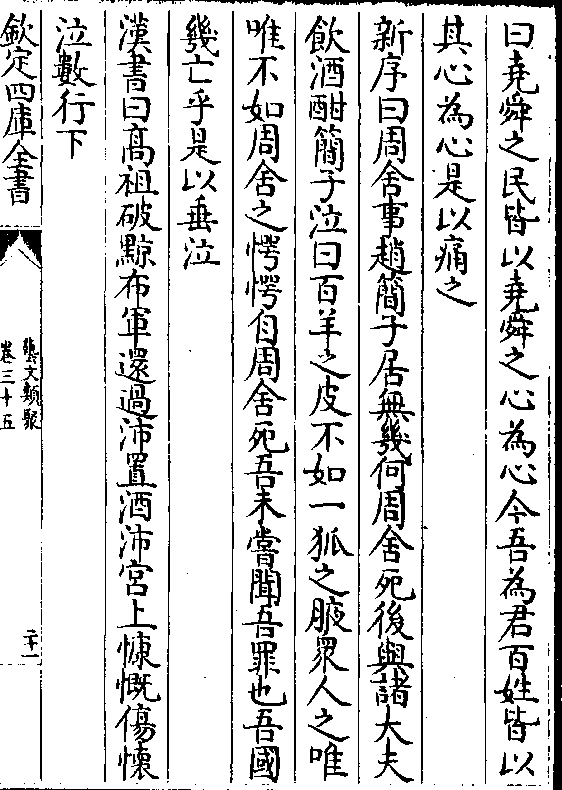 曰堯舜之民皆以堯舜之心為心今吾為君百姓皆以
其心為心是以痛之
新序曰周舍事趙簡子居無幾何周舍死後與諸大夫
飲酒酣簡子泣曰百羊之皮不如一狐之腋衆人之唯
唯不如周舍之愕愕自周舍死吾未嘗聞吾罪也吾國
幾亡乎是以垂泣
漢書曰髙祖破黥布軍還過沛置酒沛宮上慷慨傷懷
泣數行下
欽定四庫全書
藝文類聚
卷三十五
二十一